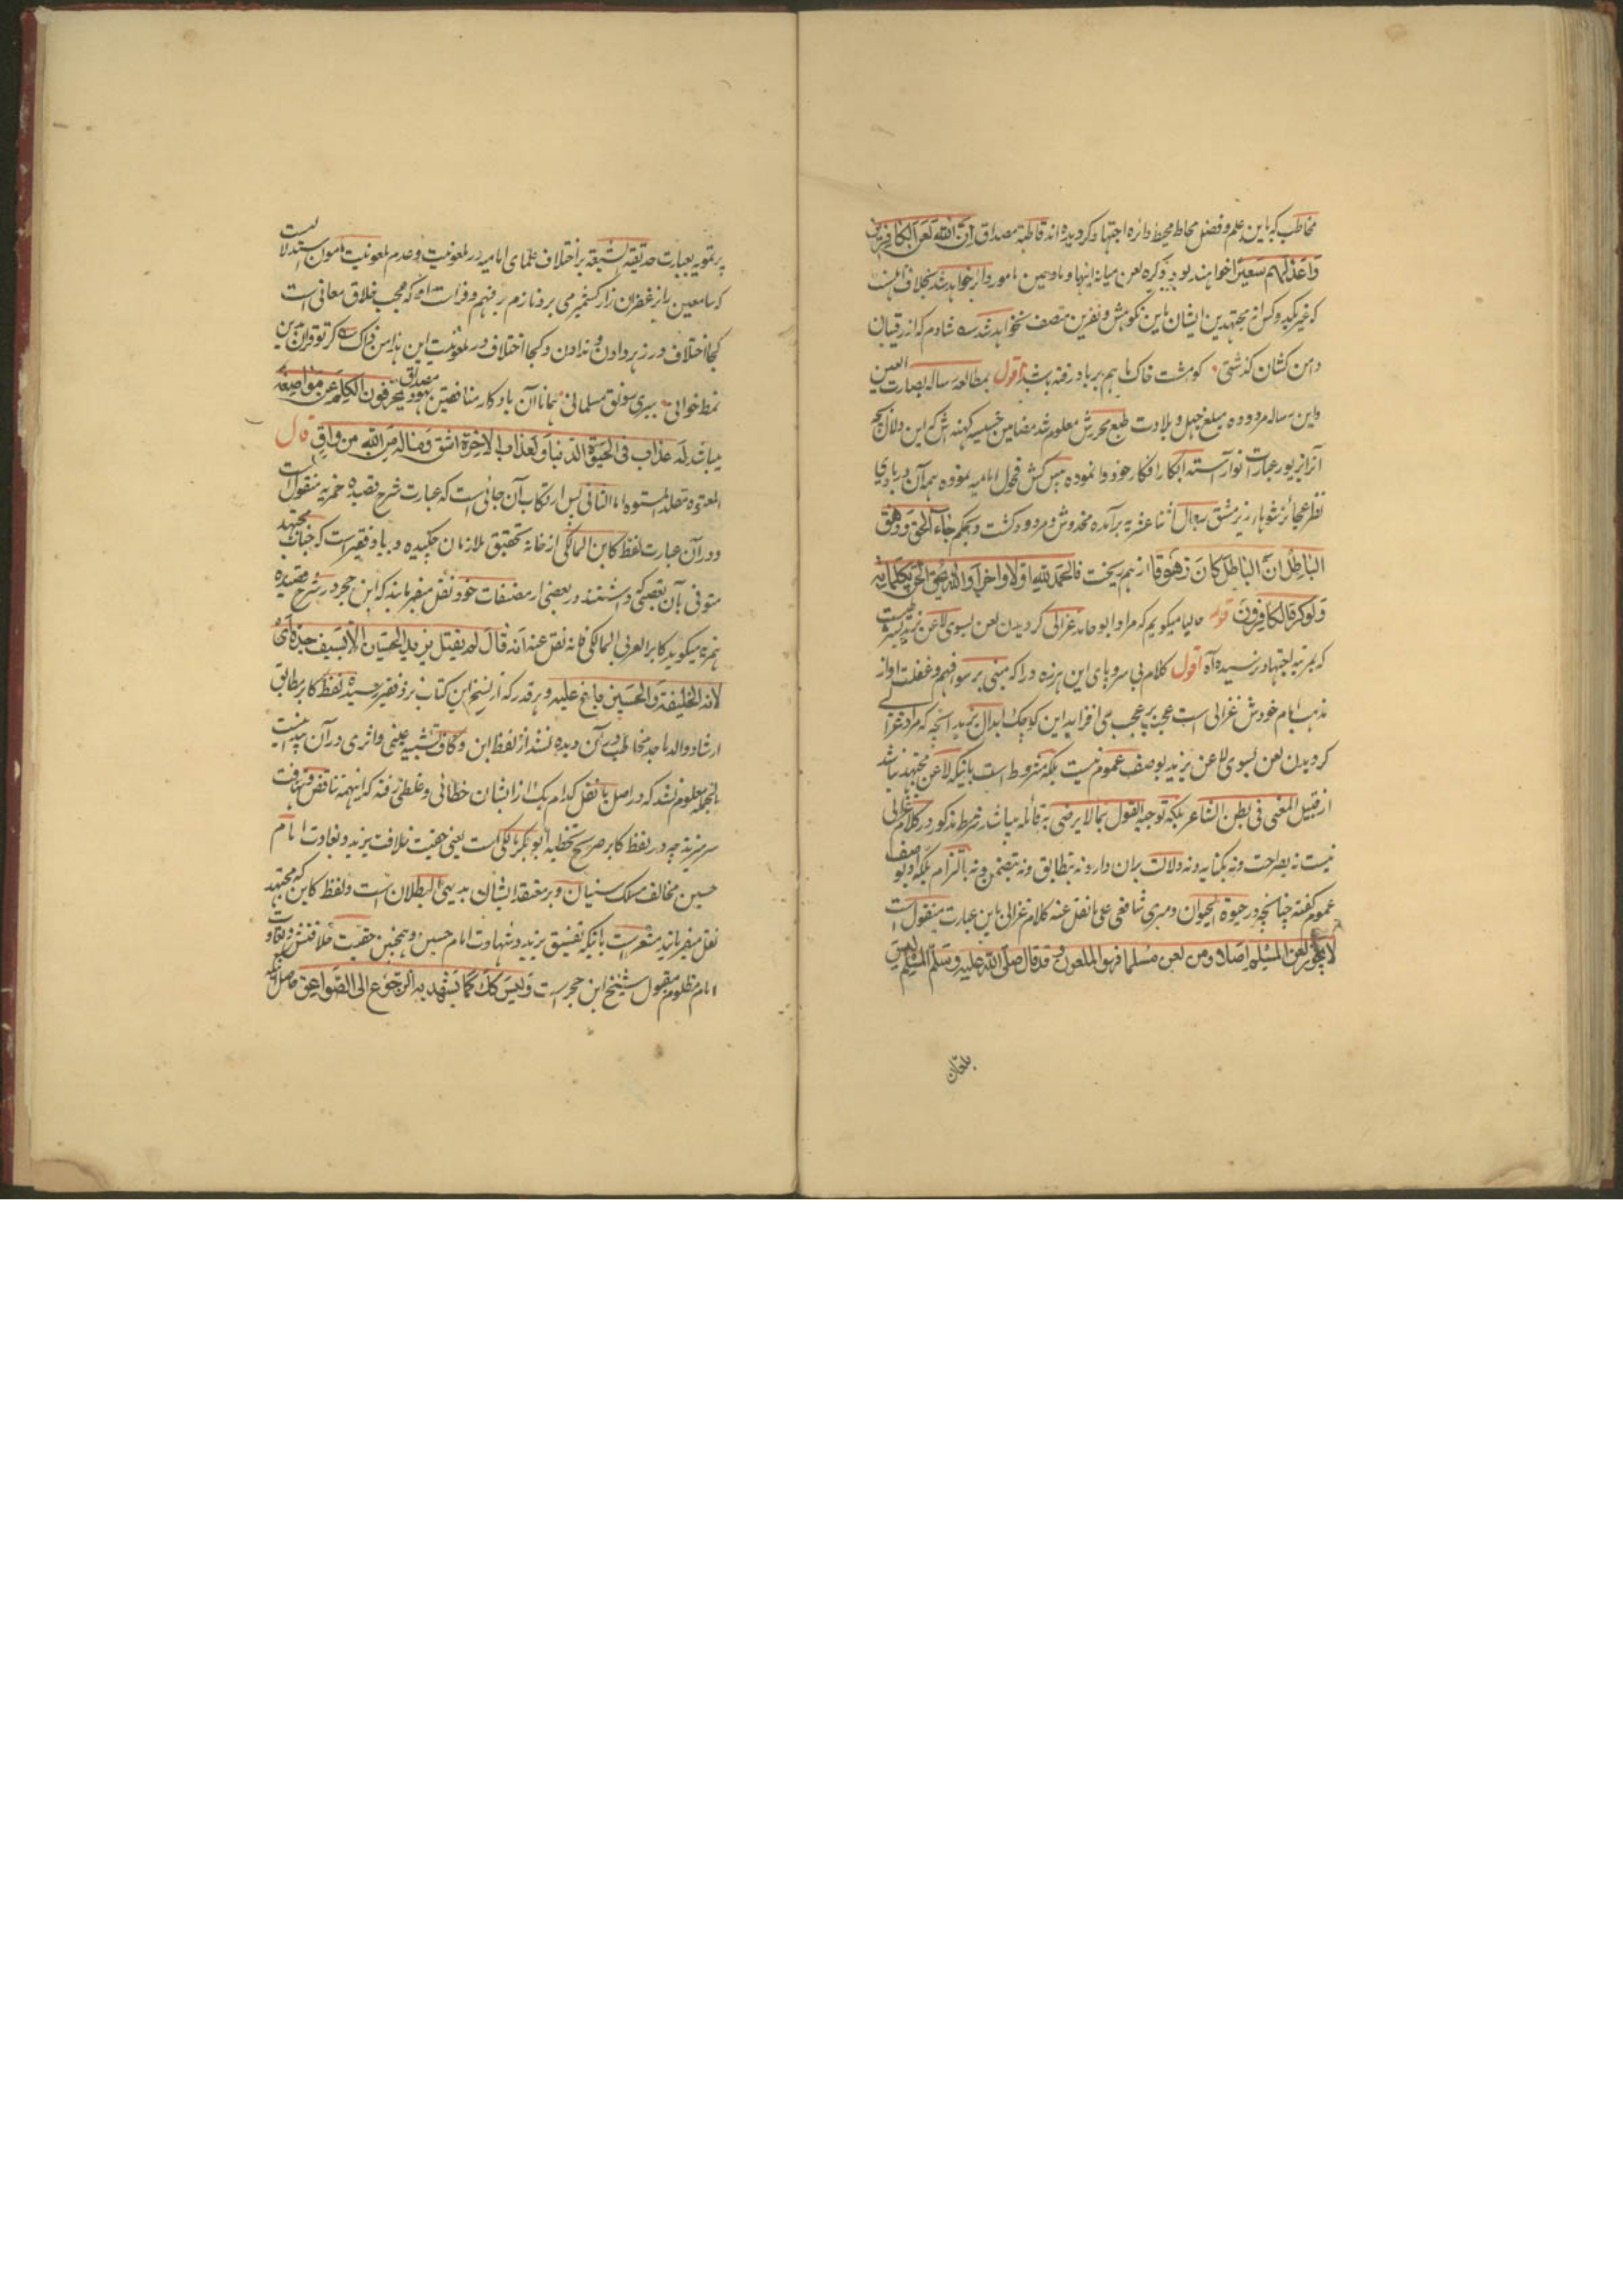 مخاطب که باین علم و فضل محاط محیط دائره اجتهاد کردیده اند قاطبة مصداق ان الله لعن الکافرین
واعد لهم سعیرا خواهند بود ذکره لعن میانه اینها و مامور دائر خواهد شد بخلاف اهلسنت
که غیر یکدوکس از مجتهدین ایشان باین نکوهش و نفرین متصف نخواهد شد شادم که از رقیبان
دامن کشان گذشتی کو مشت خاک ما هم برباد رفته باشد اقول بمطالعه رساله بصارت العین
واین رساله مردوده مبلغ جهل و بلادت طبع محررش معلوم شد مضامین خسیسه کهنه اش که این دلال کچه
آنرا بزیور عبارت انوار آراسته ابکار افکار خود وانموده پیش کش فحول امامیه نموده همه آن در بادی
نظر عجائز شوهاء زیر مشق رجال اثنا عشریه برآمده مخدوش و مردود گشت و بحکم جاء الحق وزهق
الباطل ان الباطل کان زهوقا از هم ریخت فالحمد لله اولا واخرا والله یحق الحق بکلماته
ولو کره الکافرون قوله حالیا میگویم که مراد ابو حامد غزالی کردیدن لعن بسوی لاعن یزید بشرطیست
که بمرتبه اجتهاد نرسیده آه اقول کلام بی سروپای این هرزه درا که مبنی بر سوء فهم و غفلت او از
مذهب امام خودش غزالی است عجب بر عجب می افزاید این کوچک ابدال یزید انچه که مراد غزالی
کردیدن لعن بسوی لاعن یزید بوصف عموم نیست بلکه مشروط است باینکه لاعن مجتهد نباشد
از قبیل المعنی فی بطن الشاعر بلکه توجیه القول بمالا یرضی به قائله میباشد شرط مذکور در کلام غزالی
نیست نه بصراحت و نه بکنایه و نه دلالت بران دارد نه بتطابق و نه بتضمن و نه بالتزام بلکه او بوصف
عموم گفته چنانچه در حیوة الحیوان دمیری شافعی علی مانقل عنه کلام غزالی باین عبارت منقول است
لا یجوز لعن المسلم اصلا و من لعن مسلما فهو الملعون و قد قال صلی الله علیه وسلم المسلم لیس
بلعان
پر تمویه بعبارت حدیقة الشیعة بر اختلاف علمای امامیه در ملعونیت و عدم ملعونیت مامون استدلالیست
که سامعین را از غفران زار کشمیر می برد نازم بر فهم و فراست او که عجب خلاق معانی است
کجا اختلاف در زهر دادن و ندادن و کجا اختلاف در ملعونیت این هذا من ذاک گر تو قرآن بدین
نمط خوانی ببری رونق مسلمانی همانا آن یادگار منافقین یهود مصداق یحرفون الکلم عن مواضعه
میباشد له عذاب فی الحیوة الدنیا ولعذاب الاخرة اشق وماله من الله من واق قال
المعتوه مقلد المشتوه اما الثانی پس ارتکاب آن جائی است که عبارت شرح قصیده همزیه منقول است
و در آن عبارت لفظ کابن المالکی از خانه تحقیق ملازمان چکیده و بیاد فقیر است که جناب مجتهد
متوفی بآن تعصبی که داشتند در بعضی از مصنفات خود نقل میفرمایند که ابن حجر در شرح قصیده
همزیه میگوید کابر العربی المالکی فانه نقل عنه انه قال لم یقتل یزید الحسین الا بسیف جده ای
لانه الخلیفة والحسین باغ علیه و هرقدر که از نسخ این کتاب بنزد فقیر رسیده لفظ کابر مطابق
ارشاد والد ماجد مخاطب در آن دیده نشد از لفظ ابن و کاف تشبیه عینی و اثری در آن پیدا نیست
بالجمله معلوم نشد که در اصل یا نقل کدام یک از ایشان خطائی و غلطی رفته که اینهمه تناقض و تهافت
سر بر زده چه در لفظ کابر صریح تخطیه ابوبکر مالکی است یعنی حقیت خلافت یزید و بغاوت امام
حسین مخالف مسلک سنیان و بر معتقد ایشان بدیهی البطلان است و لفظ کابن که مجتهد
نقل میفرمایند مشعر است باینکه تفسیق یزید و شهادت امام حسین و همچنین حقیت خلافتش و بغاوت
امام مظلوم مقول شیخ ابن حجر است ولیس کک کما یشهد به الرجوع الی الصواعق حاصل آنکه